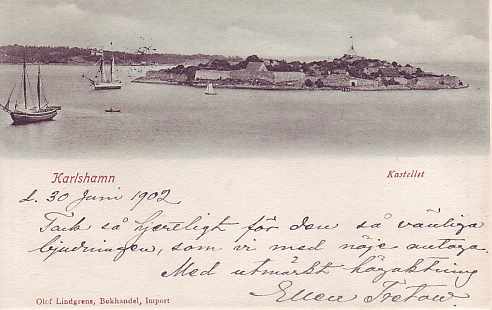 Karlshamn
Kastellet
d. 30 Juni 1902
Tack så hjerteligt för den så vänliga
bjudningen, som vi med nöje antaga.
Med utmärkt högaktning
Ellen Tretow.
Olof Lindgrens, Bokhandel, Import